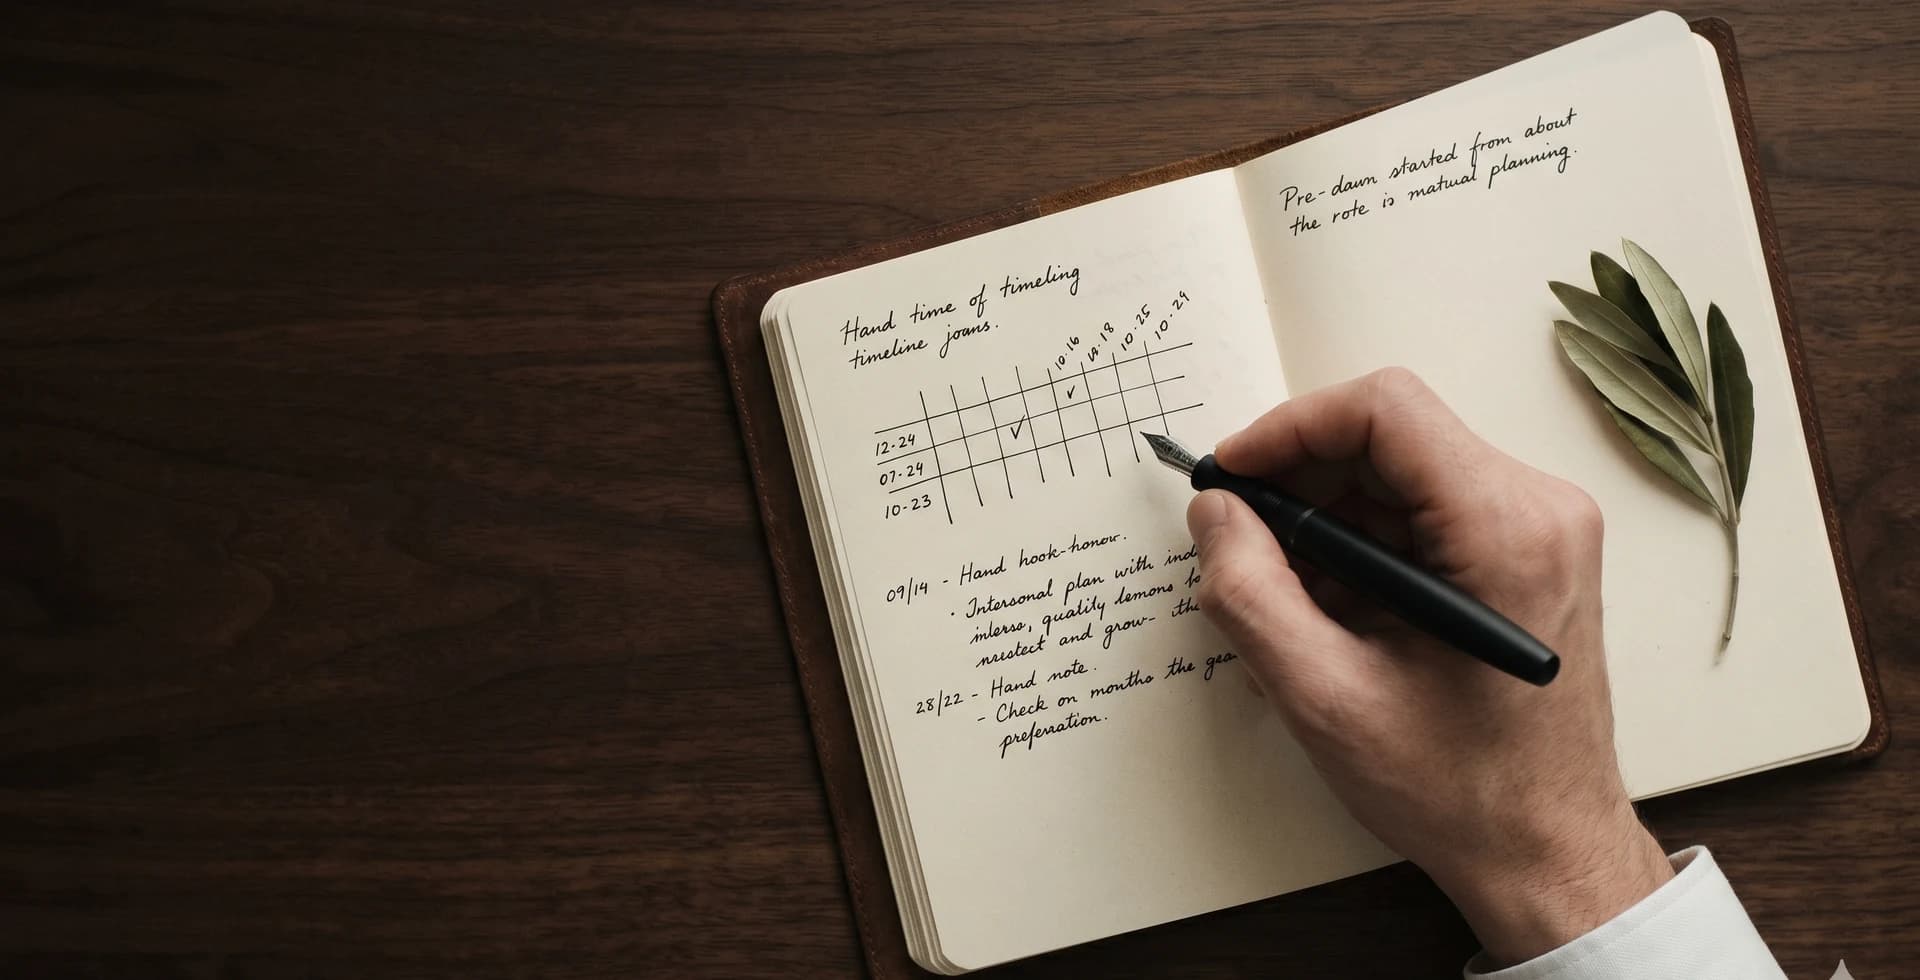 Hand time of timeling
timeline joans.
10-16
10-25
10-29
12-24
07-24
10-23
09/14 - Hand hook-honow.
• Intersonal plan with
quality lemons
and grow-
28/22 - Hand note.
- Check on months the
Pre-dawn started from about
the rote is matual planning.